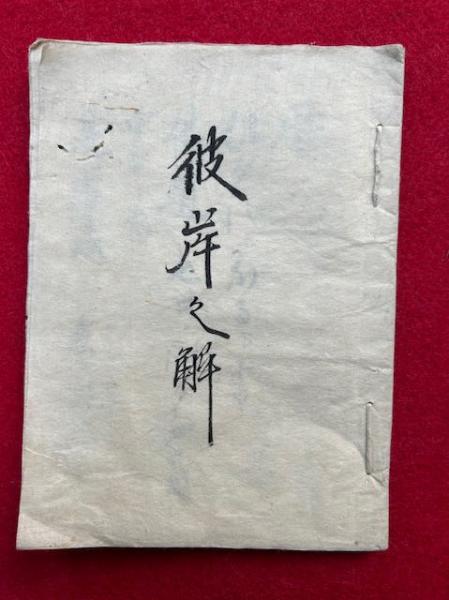 彼岸之解